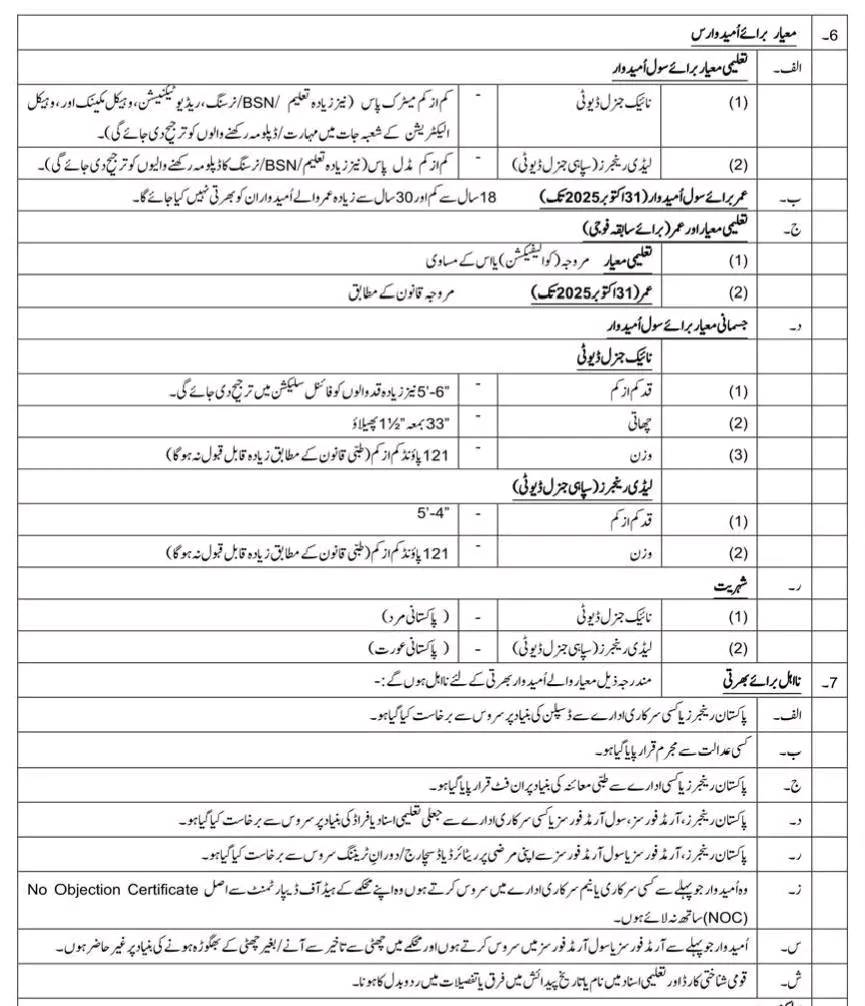 6۔ معیار برائے اُمیدوارس
الف۔ تعلیمی معیار برائے سول اُمیدوار
(1) نائیک جنرل ڈیوٹی - کم از کم میٹرک پاس (نیز زیادہ تعلیم /BSN/نرسنگ، ریڈیو ٹیکنیشن، وہیکل مکینک اور، وہیکل
الیکٹریشن کے شعبہ جات میں مہارت/ڈپلومہ رکھنے والوں کو ترجیح دی جائے گی)۔
(2) لیڈی رینجرز (سپاہی جنرل ڈیوٹی) - کم از کم مڈل پاس (نیز زیادہ تعلیم/BSN/نرسنگ کا ڈپلومہ رکھنے والیوں کو ترجیح دی جائے گی)۔
ب۔ عمر برائے سول اُمیدوار (31 اکتوبر 2025 تک) 18 سال سے کم اور 30 سال سے زیادہ عمر والے اُمیدواران کو بھرتی نہیں کیا جائے گا۔
ج۔ تعلیمی معیار اور عمر (برائے سابقہ فوجی)
(1) تعلیمی معیار مروجہ (کوالیفیکشن) یا اس کے مساوی
(2) عمر (31 اکتوبر 2025 تک) مروجہ قانون کے مطابق
د۔ جسمانی معیار برائے سول اُمیدوار
نائیک جنرل ڈیوٹی
(1) قد کم از کم - 5'-6" نیز زیادہ قد والوں کو فائنل سلیکشن میں ترجیح دی جائے گی۔
(2) چھاتی - 33" بمعہ 1½" پھیلاؤ
(3) وزن - 121 پاؤنڈ کم از کم (طبّی قانون کے مطابق زیادہ قابل قبول نہ ہو گا)
لیڈی رینجرز (سپاہی جنرل ڈیوٹی)
(1) قد کم از کم - 5'-4"
(2) وزن - 121 پاؤنڈ کم از کم (طبّی قانون کے مطابق زیادہ قابل قبول نہ ہو گا)
ر۔ شہریت
(1) نائیک جنرل ڈیوٹی - (پاکستانی مرد)
(2) لیڈی رینجرز (سپاہی جنرل ڈیوٹی) - (پاکستانی عورت)
7۔ نااہل برائے بھرتی مندرجہ ذیل معیار والے اُمیدوار بھرتی کے لئے نااہل ہوں گے:-
الف۔ پاکستان رینجرز یا کسی سرکاری ادارے سے ڈسپلن کی بنیاد پر سروس سے برخاست کیا گیا ہو۔
ب۔ کسی عدالت سے مجرم قرار پایا گیا ہو۔
ج۔ پاکستان رینجرز یا کسی ادارے سے طبّی معائنہ کی بنیاد پر ان فٹ قرار پایا گیا ہو۔
د۔ پاکستان رینجرز، آرمڈ فورسز، سول آرمڈ فورسز یا کسی سرکاری ادارے سے جعلی تعلیمی اسناد یا فراڈ کی بنیاد پر سروس سے برخاست کیا گیا ہو۔
ر۔ پاکستان رینجرز، آرمڈ فورسز یا سول آرمڈ فورسز سے اپنی مرضی پر ریٹائرڈ یا ڈسچارج/دورانِ ٹریننگ سروس سے برخاست کیا گیا ہو۔
ز۔ وہ اُمیدوار جو پہلے سے کسی سرکاری یا نیم سرکاری ادارے میں سروس کرتے ہوں وہ اپنے محکمے کے ہیڈ آف ڈیپارٹمنٹ سے اصل No Objection Certificate
(NOC) ساتھ نہ لائے ہوں۔
س۔ اُمیدوار جو پہلے سے آرمڈ فورسز یا سول آرمڈ فورسز میں سروس کرتے ہوں اور محکمے میں چھٹی سے تاخیر سے آنے/بغیر چھٹی کے بھگوڑہ ہونے کی بنیاد پر غیر حاضر ہوں۔
ش۔ قومی شناختی کارڈ اور تعلیمی اسناد میں نام یا تاریخ پیدائش میں فرق یا تفصیلات میں ردوبدل کا ہونا۔